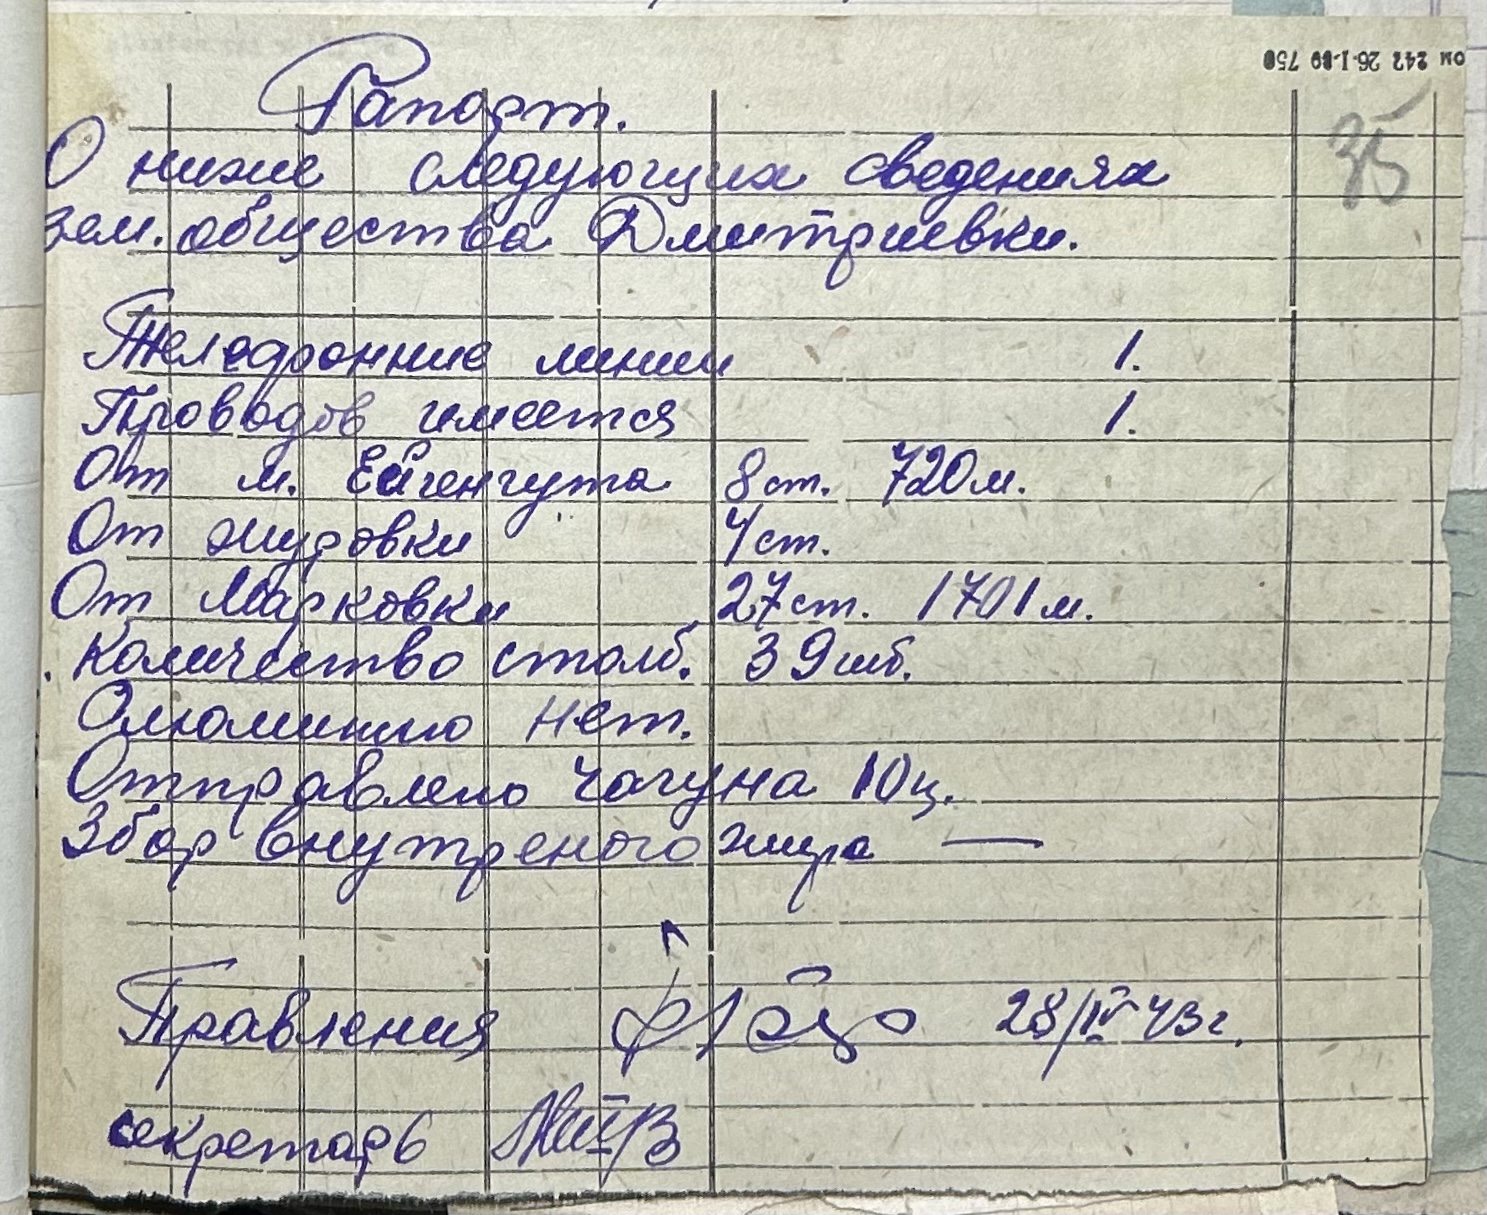 ом 242 26-I-89 750
35
Рапорт.
О ниже следующих сведениях
зем. общества Дмитриевки.
Телефонние линии 1.
Проводов имеется 1.
От м. Ейгенгута 8 ст. 720 м.
От журовки 4 ст.
От Марковки 27 ст. 1701 м.
Количество столб. 39 шт.
Олюминию нет.
Отправлено чагуна 10 ц.
Збор внутреного жира —
Правления 28/IV 43 г.
секретарь